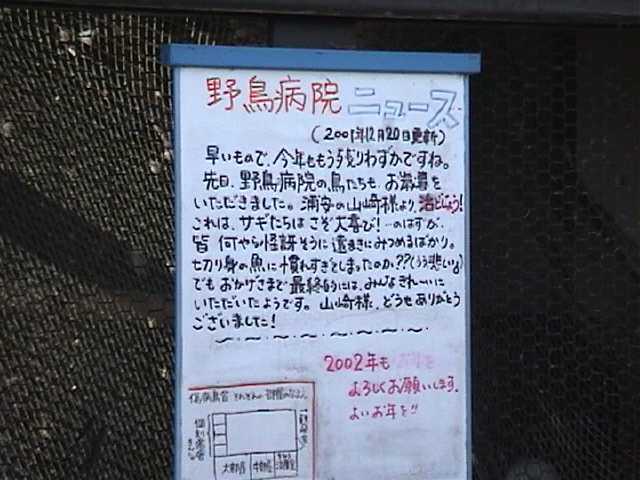 野鳥病院ニュース
(2001年12月20日更新)
早いもので、今年ももう残りわずかですね。
先日、野鳥病院の鳥たちも、お歳暮を
いただきました。浦安の山崎様より、活どじょう!
これは、サギたちはさぞ大喜び!…のはずが、
皆 何やら怪訝そうに遠まきにみつめるばかり。
切り身の魚に慣れすぎてしまったのか??(うう悲しいよ)
でもおかげさまで最終的には、みんなきれーいに
いただいたようです。山崎様、どうもありがとう
ございました!
2002年も
よろしくお願いします。
よいお年を!!
大部屋